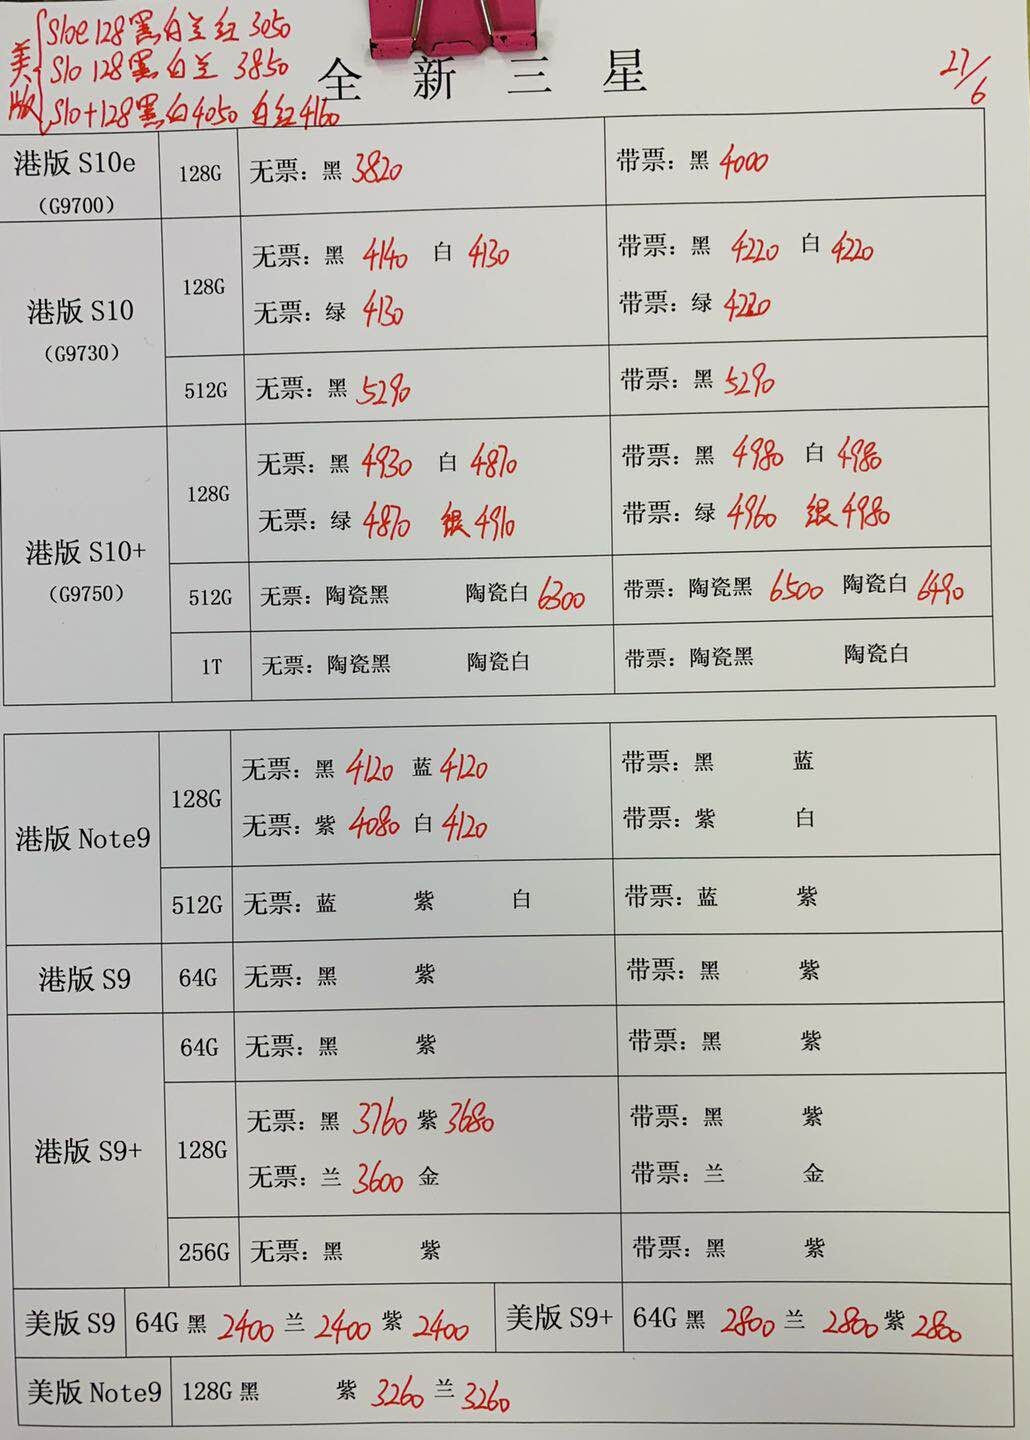 美版 S10e 128 黑白兰红 3050
S10 128 黑白兰 3850
S10+128黑白4050 白红4160
全新三星
27/6
港版 S10e (G9700) 128G 无票：黑 3820 带票：黑 4000
港版 S10 (G9730) 128G 无票：黑 4140 白 4130 带票：黑 4220 白 4220
无票：绿 4130 带票：绿 4220
512G 无票：黑 5290 带票：黑 5290
港版 S10+ (G9750) 128G 无票：黑 4930 白 4870 带票：黑 4980 白 4980
无票：绿 4870 银 4910 带票：绿 4960 银 4980
512G 无票：陶瓷黑 陶瓷白 6300 带票：陶瓷黑 6500 陶瓷白 6490
1T 无票：陶瓷黑 陶瓷白 带票：陶瓷黑 陶瓷白
港版 Note9 128G 无票：黑 4120 蓝 4120 带票：黑 蓝
无票：紫 4080 白 4120 带票：紫 白
512G 无票：蓝 紫 白 带票：蓝 紫
港版 S9 64G 无票：黑 紫 带票：黑 紫
港版 S9+ 64G 无票：黑 紫 带票：黑 紫
128G 无票：黑 3760 紫 3680 带票：黑 紫
无票：兰 3600 金 带票：兰 金
256G 无票：黑 紫 带票：黑 紫
美版 S9 64G 黑 2400 兰 2400 紫 2400 美版 S9+ 64G 黑 2800 兰 2800 紫 2800
美版 Note9 128G 黑 紫 3260 兰 3260